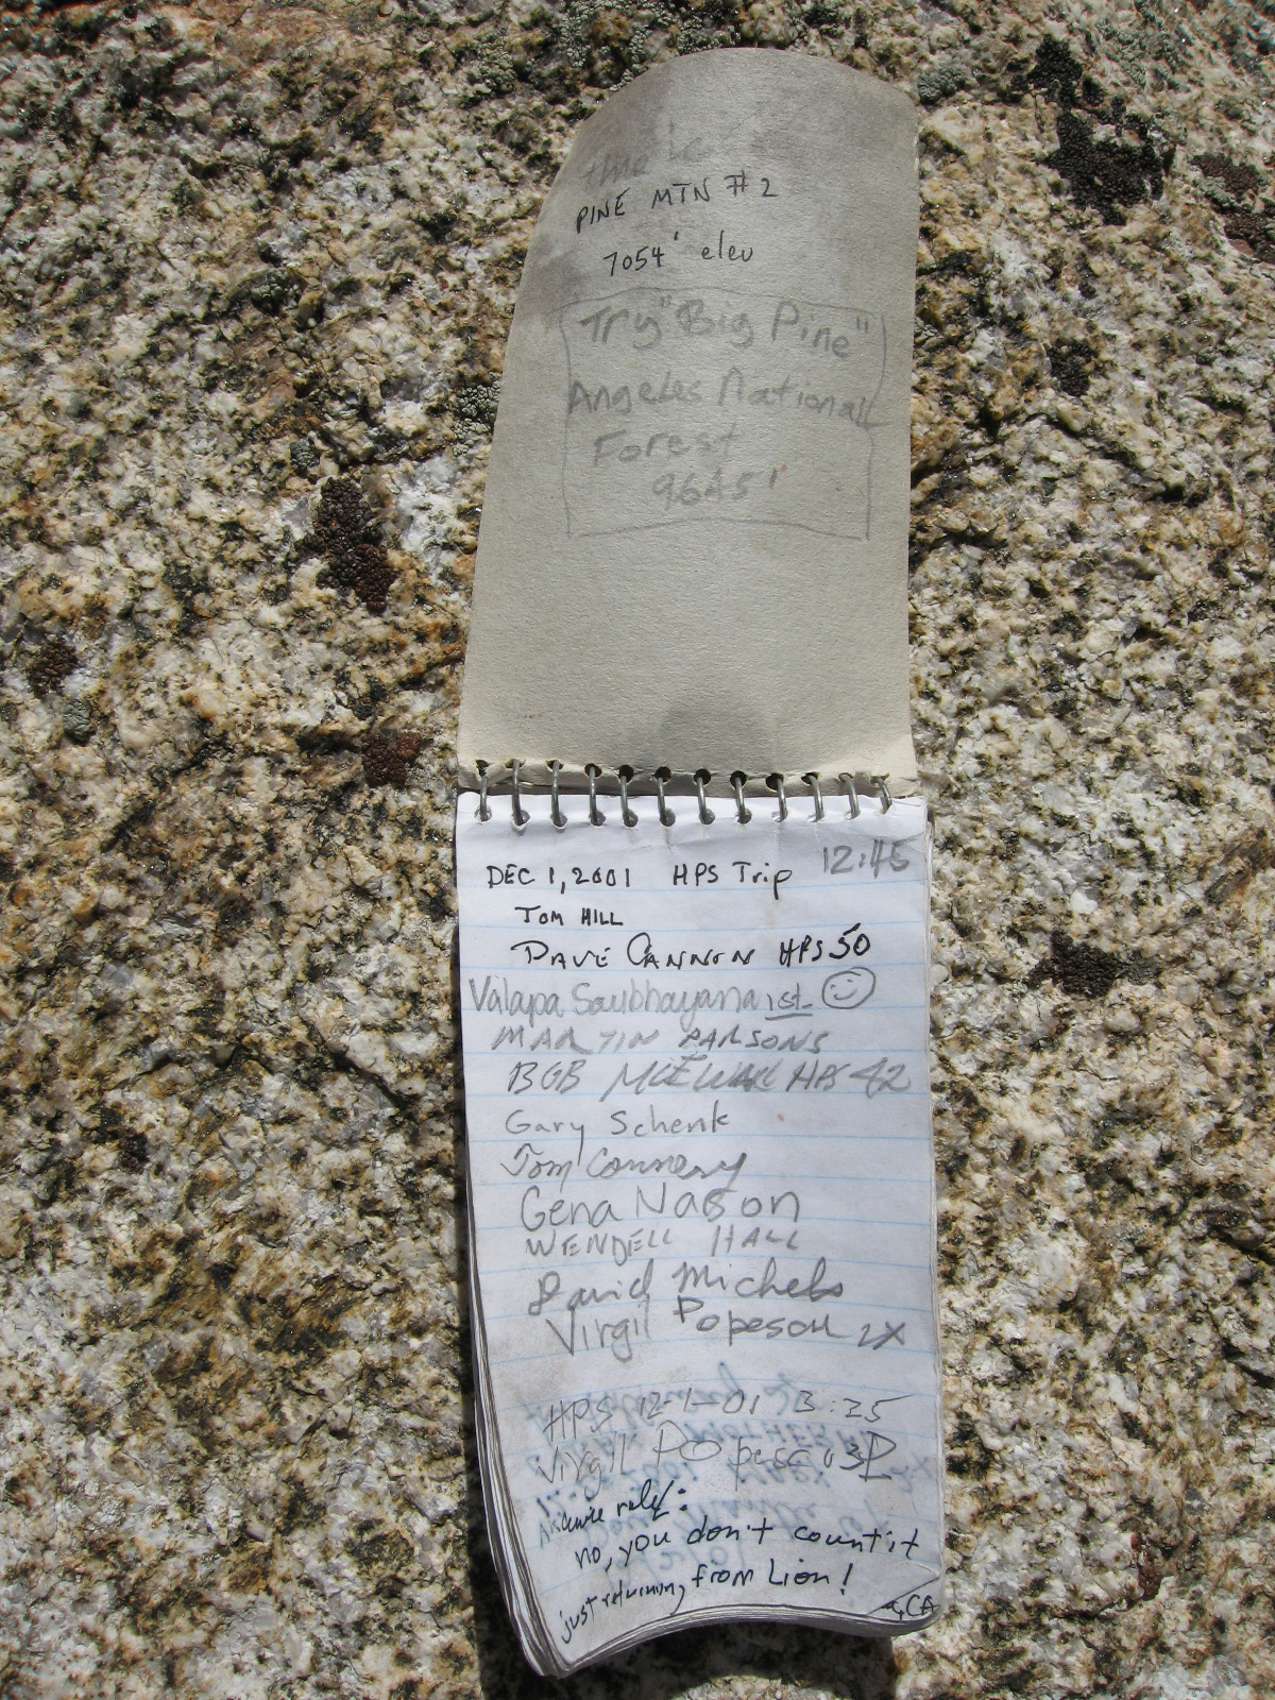 PINE MTN # 2
7054' elev
Try "Big Pine"
Angeles National
Forest
9645'
12:45
DEC 1, 2001 HPS Trip
TOM HILL
DAVE CANNON HPS 50
Valapa Saubhayana 1st
MARTIN PARSONS
BOB HPS 42
Gary Schenk
Tom Connery
Gena Nason
WENDELL HALL
David Michels
Virgil Popescu 2X
HPS 12-1-01 3:25
Virgil Popescu
no, you don't count it
just returning from Lion!